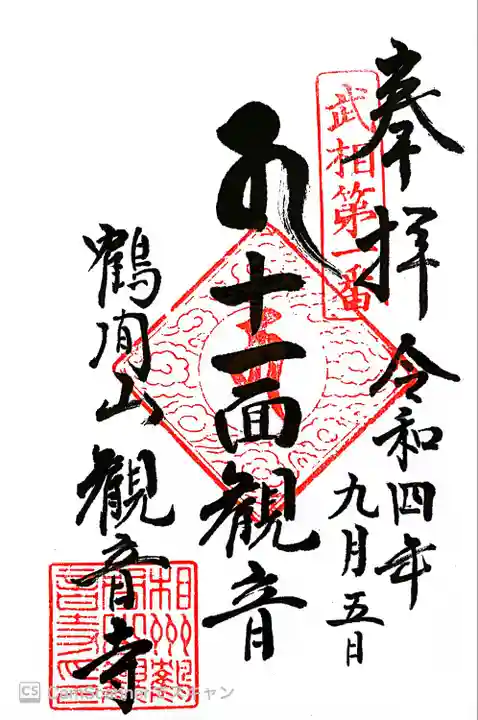 奉拝
武相第一番
令和四年
九月五日
十一面観音
鶴間山
観音寺
CS CamScannerでスキャン